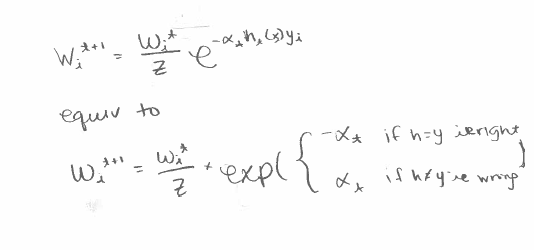 wᵢᵗ⁺¹ = wᵢᵗ/z e^(-αₜhₜ(x)yᵢ)
equiv to
wᵢᵗ⁺¹ = wᵢᵗ/z * exp( { -αₜ if h=y ie right
αₜ if h≠y ie wrong )